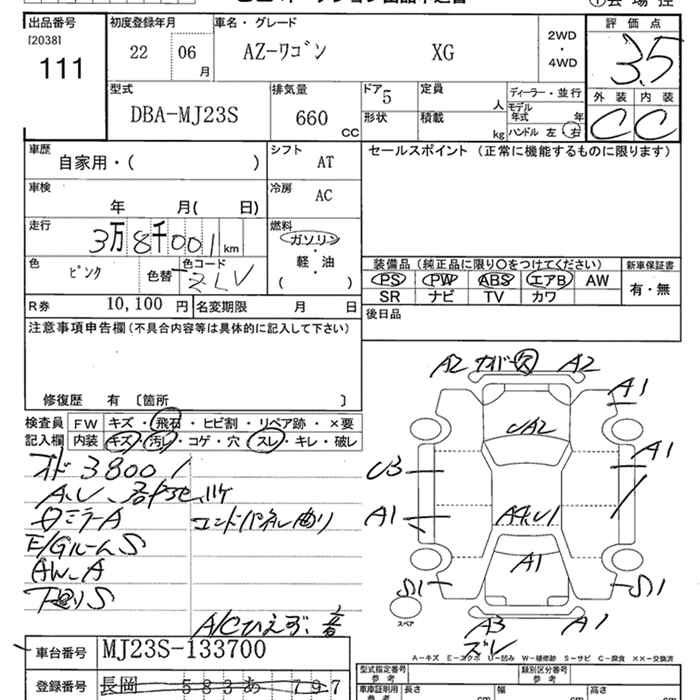 出品番号
[2038]
111
初度登録年月
22 06 月
車名・グレード
AZ-ワゴン XG
2WD
・
4WD
評価点
3.5
外装 内装
C C
型式
DBA-MJ23S
排気量
660 CC
ドア 5
形状
定員 人
積載 kg
ディーラー・並行
モデル年式 年
ハンドル 左 右
車歴
自家用・( )
シフト
AT
車検
年 月( 日)
冷房
AC
走行
3万8千001 km
燃料
ガソリン
軽・油
( )
色
ピンク
色替
色コード
ZLV
R券 10,100 円
名変期限 月 日
セールスポイント (正常に機能するものに限ります)
装備品 (純正品に限り○をつけてください)
PS PW ABS エアB AW
SR ナビ TV カワ
新車保証書
有・無
後日品
注意事項申告欄(不具合内容等は具体的に記入して下さい)
修復歴 有 〔箇所 〕
検査員
記入欄
FW キズ・飛石・ヒビ割・リペア跡・×要
内装 キズ・汚レ・コゲ・穴・スレ・キレ・破レ
オド38001
A、U
ミラーA
エンドパネル曲り
E/GルームS
AW-A
下回りS
A/C
A2 カバー欠 A2
A1
UA2
U3
A1
A1
A4、U1
A1
S1
S1
A3
ズレ
A1
スペア
A-キズ E-エクボ U-凹み W-補修跡 S-サビ C-腐食 ××-交換済
車台番号
MJ23S-133700
登録番号
長岡 583 あ 797
型式指定番号
参考
類別区分番号
参考
車庫証明用
参考
長さ cm
幅 cm
高さ cm